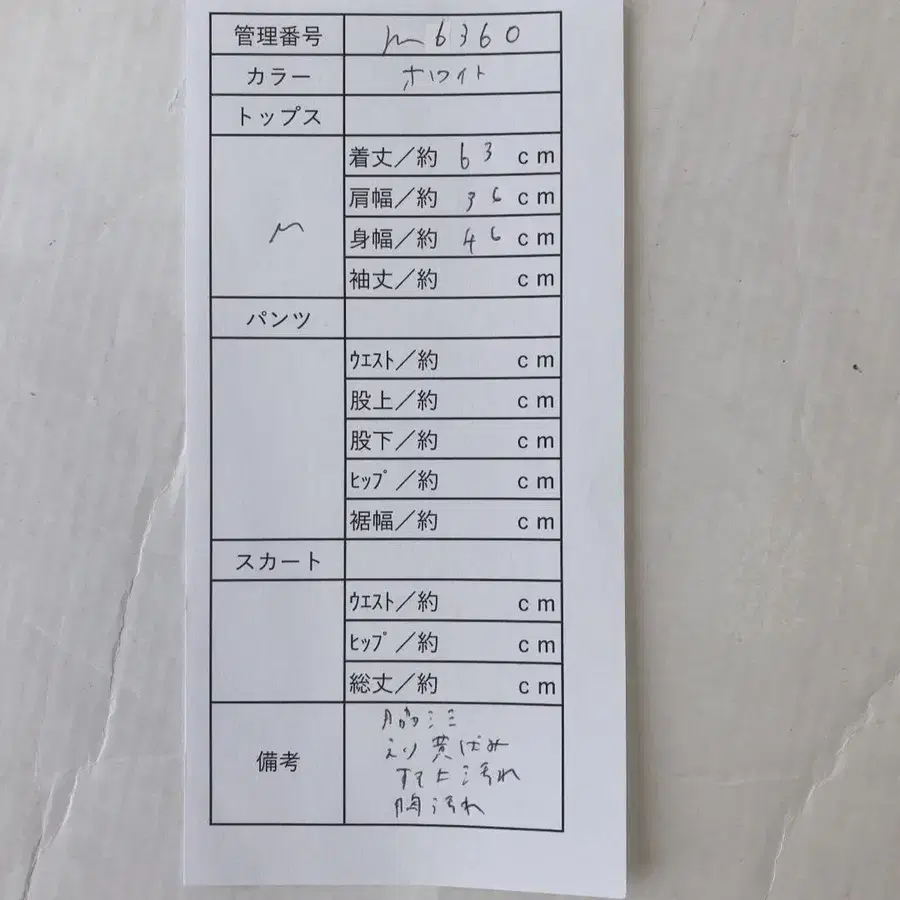 管理番号 m6360
カラー ホワイト
トップス
M
着丈／約 63 cm
肩幅／約 36 cm
身幅／約 46 cm
袖丈／約 cm
パンツ
ｳｴｽﾄ／約 cm
股上／約 cm
股下／約 cm
ﾋｯﾌﾟ／約 cm
裾幅／約 cm
スカート
ｳｴｽﾄ／約 cm
ﾋｯﾌﾟ／約 cm
総丈／約 cm
備考
脇シミ
えり黄ばみ
汚れ
胸汚れ